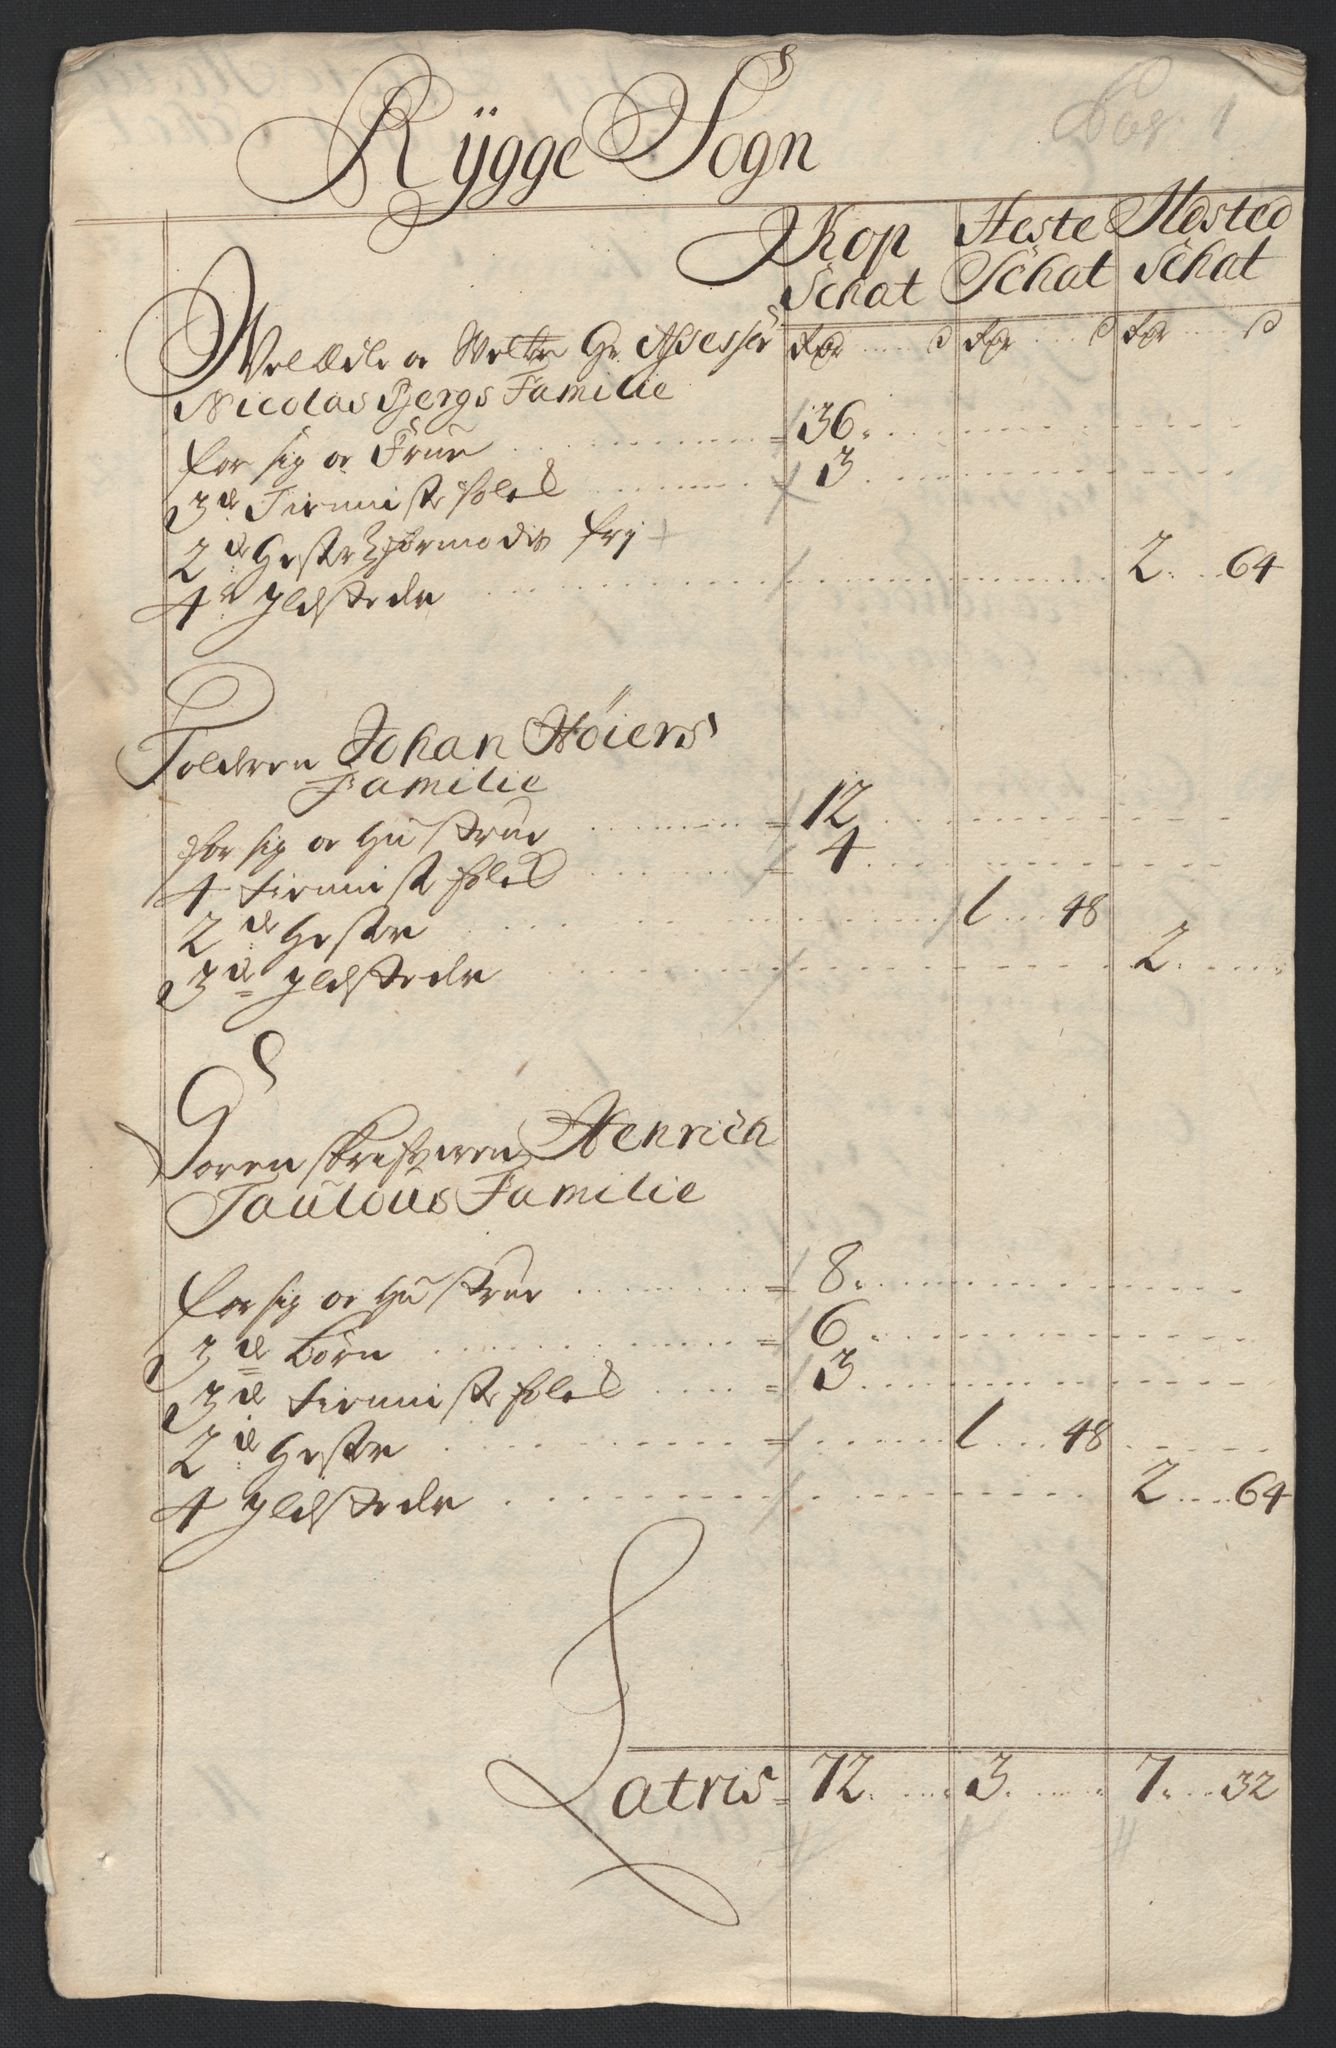 Rÿgge Sogn
Kop Schat Heste Schat Ildsted Schat
Wel Ædle oc Welbr Hr Assessor
Nicolas Bjergs Familie
for sig oc Frue 36
3de Tienniste folck 3
2de Heste formodes fry
4re Ildstede 2 64
Tolderen Johan Høiers
Familie
for sig oc Hustrue 12
4 Tienniste folck 4
2de Heste 1 48
3de Ildstede 2
Sorenskrifveren Henrich
Taulous Familie
for sig oc Hustrue 8
3de Børn 6
3de Tienniste folck 3
2de Heste 1 48
4 Ildstede 2 64
Latris 72 3 7 32